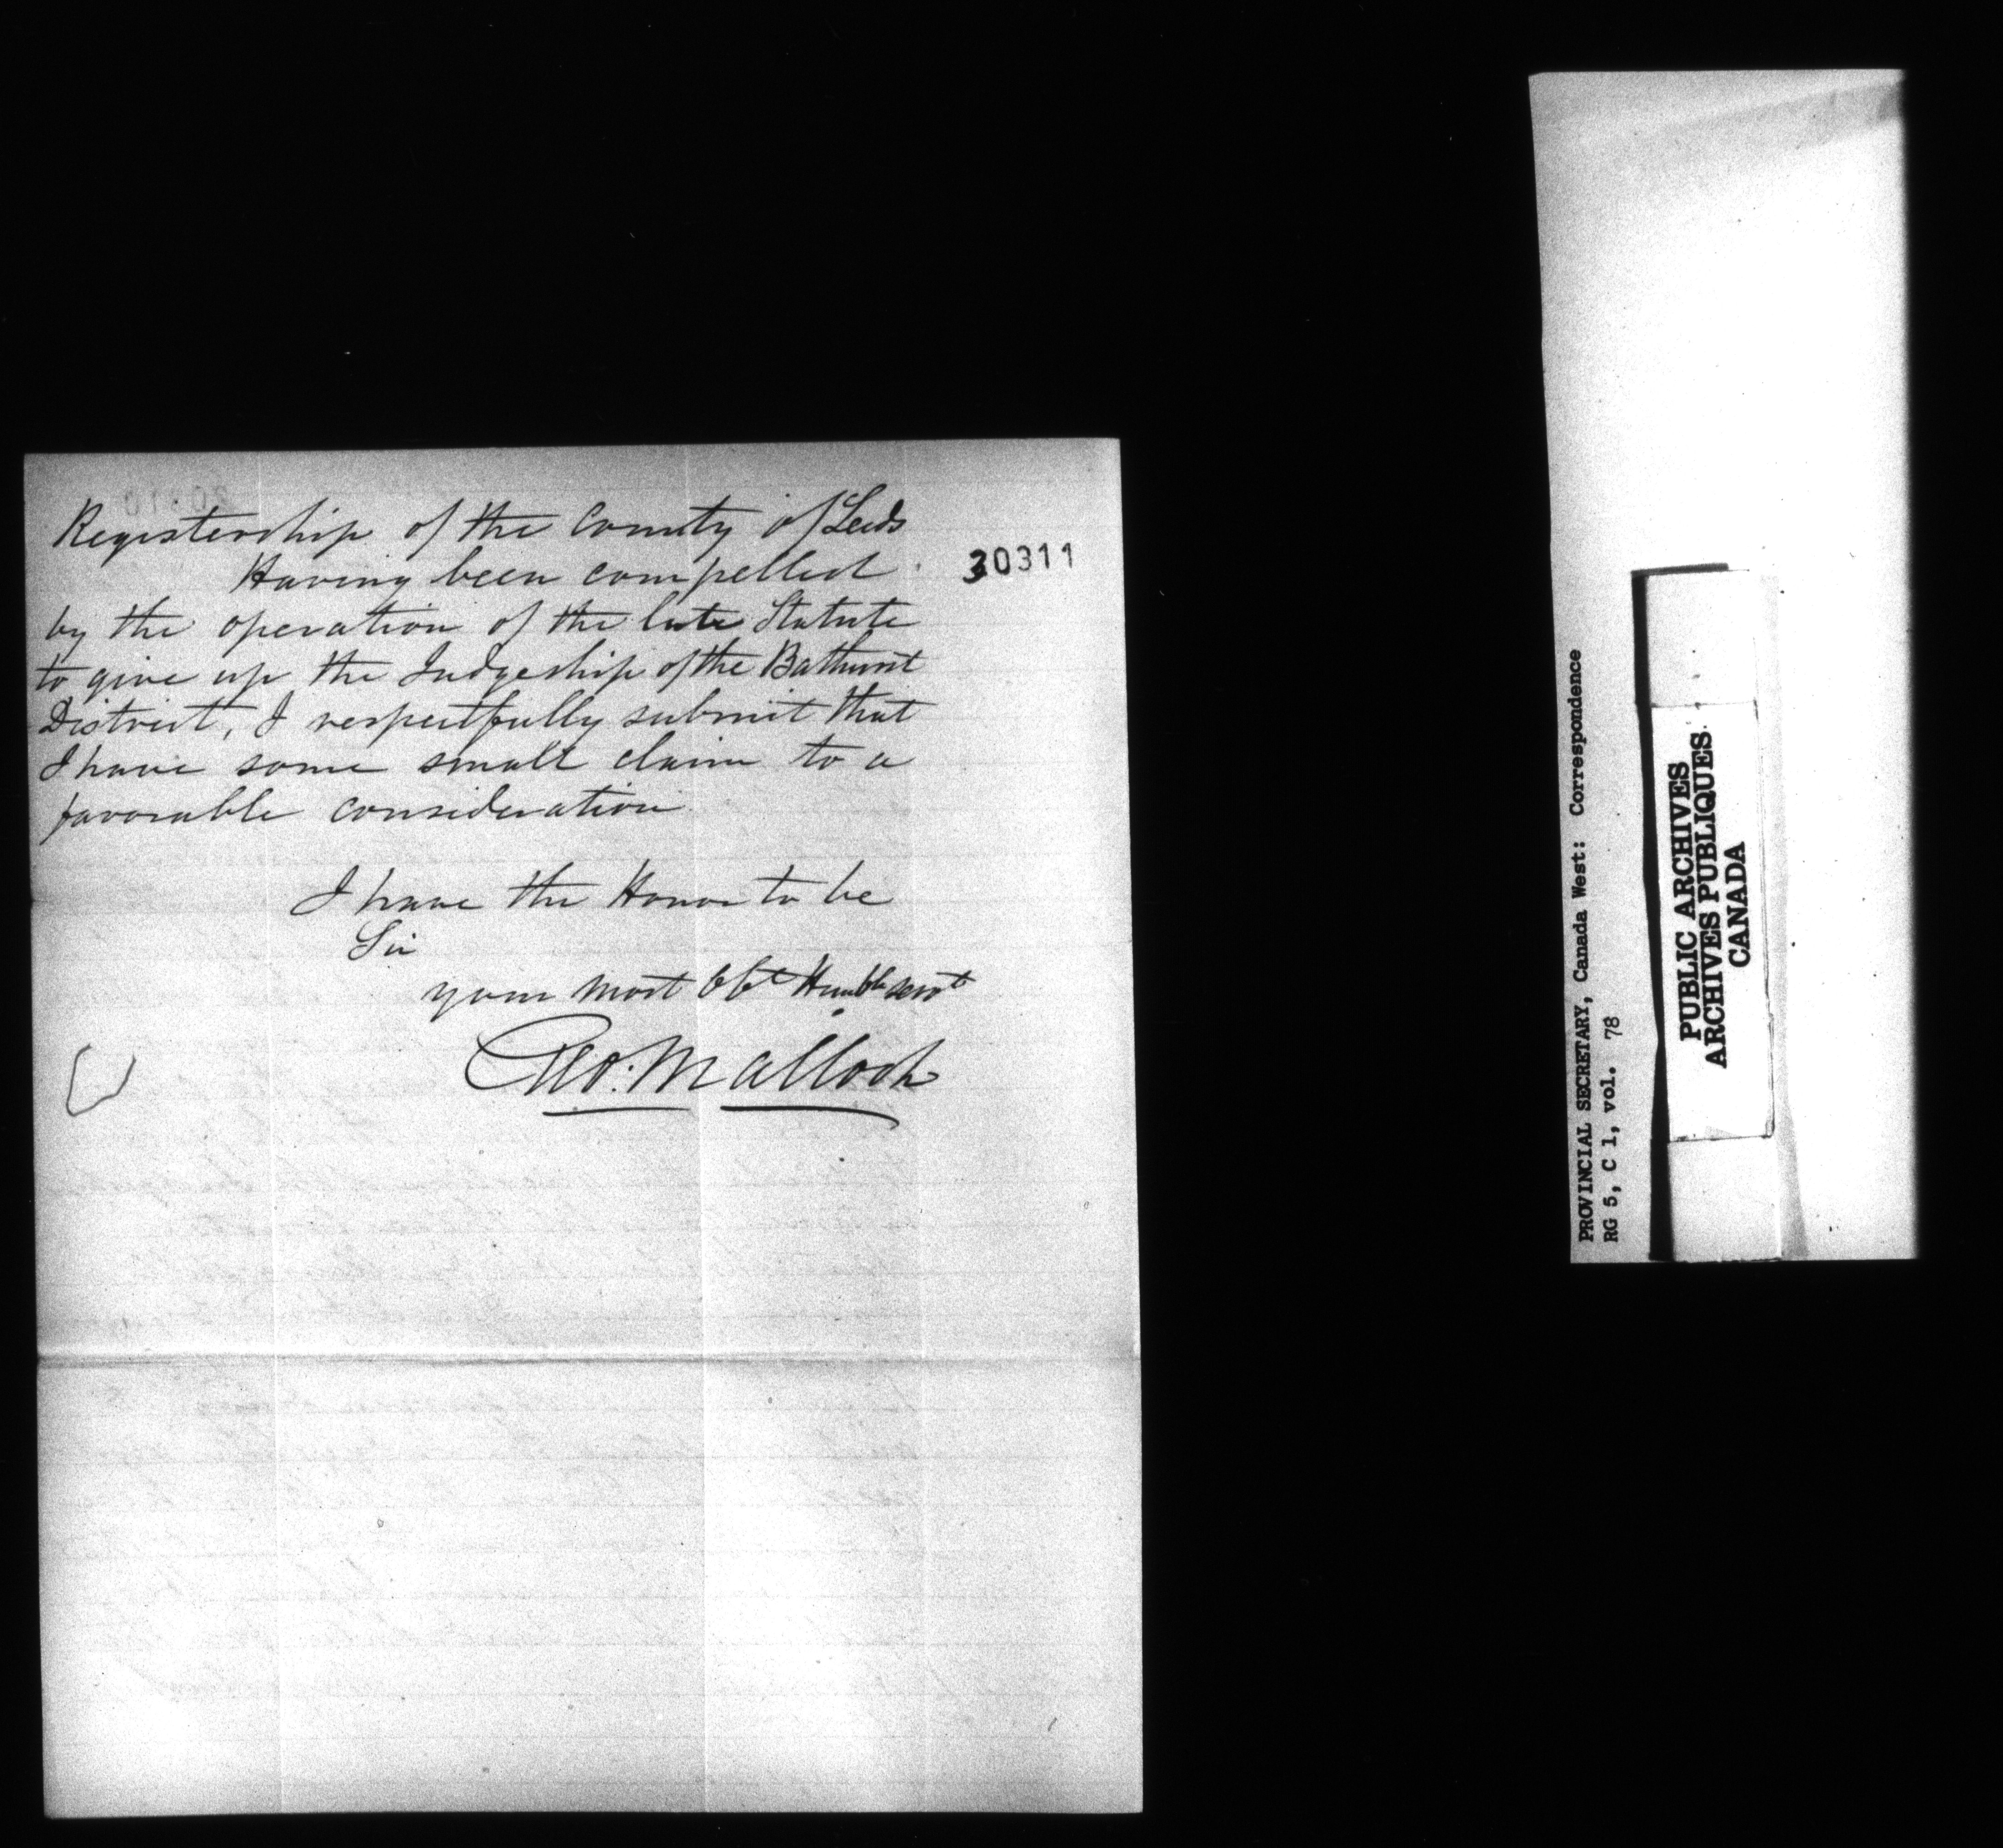 Registership of the County of Leeds
30311
Having been compelled
by the operation of the late Statute
to give up the Judgeship of the Bathurst
District, I respectfully submit that
I have some small claim to a
favorable consideration
I have the Honor to be
Sir
your most Obt Humble servt
Geo: Malloch
PROVINCIAL SECRETARY, Canada West: Correspondence
RG 5, C 1, vol. 78
PUBLIC ARCHIVES
ARCHIVES PUBLIQUES
CANADA